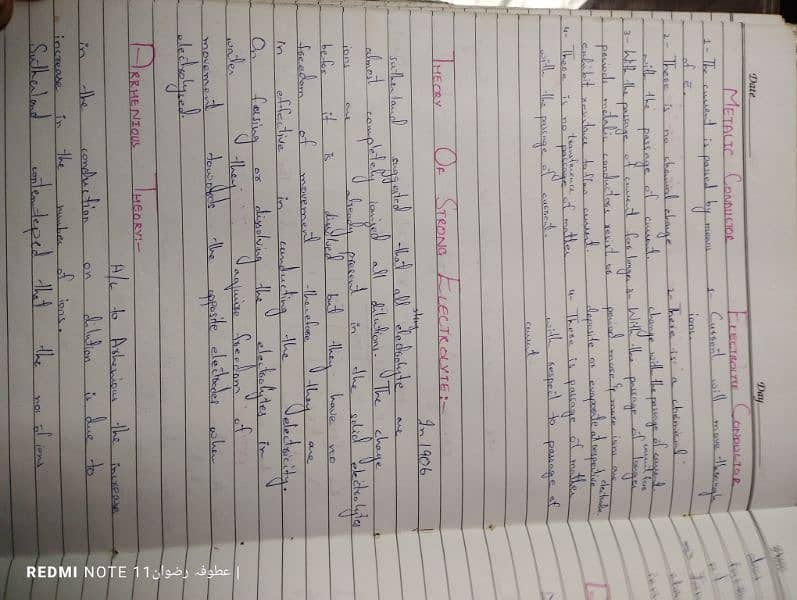 Date
Day
METALIC CONDUCTOR
ELECTROLYTIC CONDUCTOR
1- The current is passed by means
of ē.
2- There is no chemical change
with the passage of current.
3- With the passage of current for longer
period metalic conductors resist or
exhibit resistance to flow current.
4- There is no transference of matter
with the passage of current.
1- Current will move through
ions.
2- There is a chemical
change with the passage of current
3- With the passage of current for longer
period more & more ions are
deposite or evaporate at respective electrode.
4- There is passage of matter
with respect to passage of
current
THEORY OF STRONG ELECTROLYTE:-
In 1906
Sutherland suggested that all strong electrolyte are
almost completely ionized all dilution. The charge
ions are already present in the solid electrolytes
before it is disolved but they have no
freedom of movement therefore they are
in effective in conducting the electricity.
On fusing or dissolving the electrolytes in
water they aquire freedom of
movement towards the opposite electrodes when
electrolyzed
ARRHENIOUS THEORY:-
A/c to Arhenious the increase
in the conduction on dilution is due to
increase in the number of ions.
Sutherland that the no of ions
REDMI NOTE 11 | عطوفہ رضوان